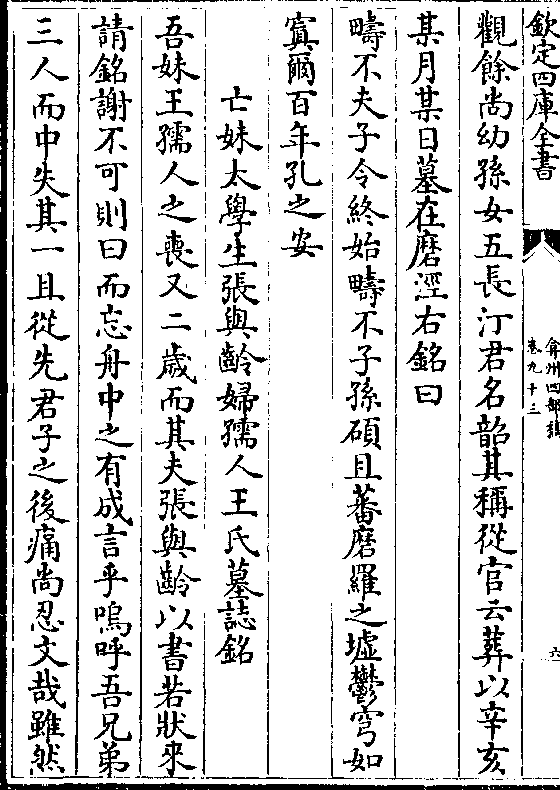 欽定四庫全書
弇州四部稿
卷九十三
六
觀餘尚幼孫女五長汀君名韶其稱從官云葬以辛亥
某月某日墓在磨涇右銘曰
疇不夫子令終始疇不子孫碩且蕃磨羅之墟鬱穹如
寘爾百年孔之安
亡妹太學生張與齡婦孺人王氏墓誌銘
吾妹王孺人之喪又二歲而其夫張與齡以書若狀來
請銘謝不可則曰而忘舟中之有成言乎嗚呼吾兄弟
三人而中失其一且從先君子之後痛尚忍文哉雖然